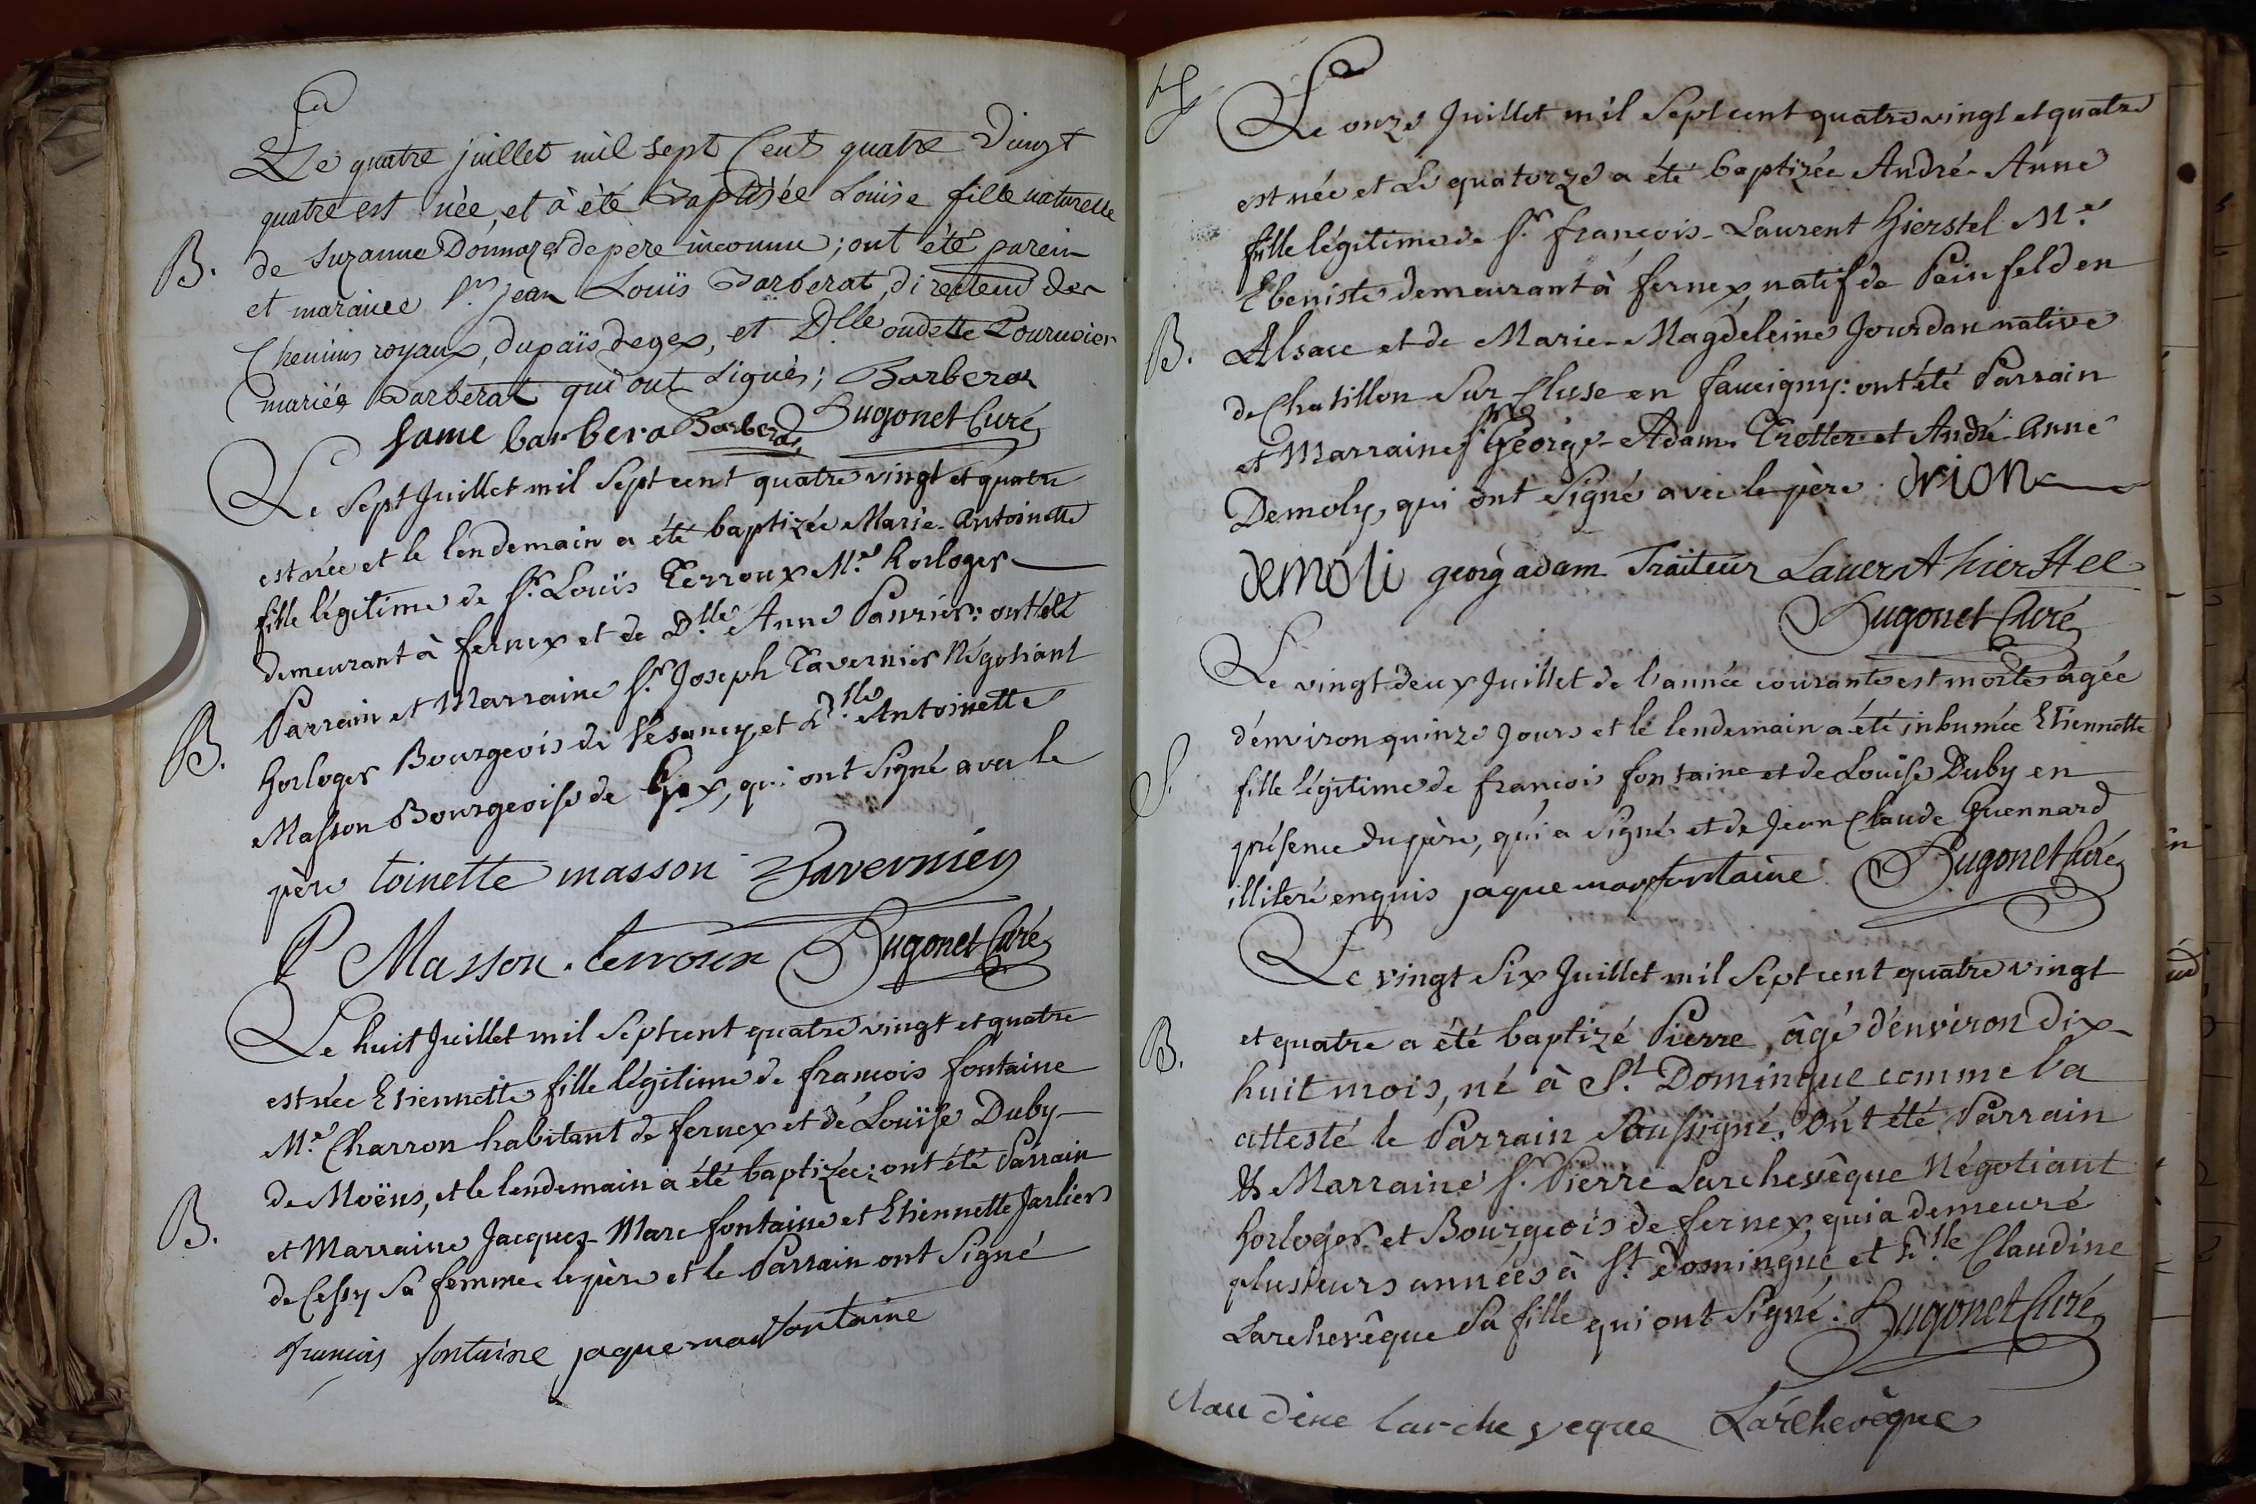 Le quatre juillet mil sept Cent quatre Vingt
quatre est née, et à été Baptisée Louise fille naturelle
B. de Suzanne Donnaz de pere inconnu; ont été parein
et maraine Sr. jean Louis Barberat, directeur des
Chemins royaux, du païs de gex, et Dlle oudette Tournier
mariée Barberat qui ont signés; Barberat
fame barbera Barberat Hugonet Curé
Le Sept Juillet mil Sept cent quatre vingt et quatre
est née et le lendemain a été baptizée Marie-Antoinette
fille légitime de Sr. Louïs Terroux Me. horloger
demeurant à fernex et de Dlle. Anne Paurier: ont été
Parrain et Marraine Sr. Joseph Tavernier Négotiant
B. horloger Bourgeois de Vesancy, et Dlle. Antoinette
Masson Bourgeoise de Gex, qui ont Signé avec le
père toinette masson Tavernier
P Masson. terroux Hugonet Curé
Le huit Juillet mil Sept cent quatre vingt et quatre
est née Etiennette fille légitime de francois fontaine
Me. Charron habitant de fernex et de Louïse Duby
de Moëns, et le lendemain a été baptizée: ont été Parrain
B. et Marraine Jacques-Marc fontaine et Etiennette Jarlier
de Cessy Sa femme. le père et le Parrain ont Signé
francois fontaine jaque mar fontaine
Le onze Juillet mil Sept cent quatre vingt et quatre
est née et Le quatorze a été baptizée André-Anne
fille légitime de Sr. francois-Laurent hierstel Me.
Ebeniste demeurant à fernex, natif de Peinfeld en
B. Alsace et de Marie-Magdeleine Jourdan native
de Chatillon Sur Cluse en faucigny: ont été Parrain
et Marraine Sr. George-Adam Tretter et André-Anne
Demoly, qui ont Signé avec le père. drion
demoli georg adam Traiteur Lauernt hierstel
Hugonet Curé
Le vingt deux Juillet de l'année courante est morte agée
d'environ quinze Jours et le lendemain a été inhumée Etiennette
S. fille légitime de francois fontaine et de Louise Duby en
présence du père, qui a Signé et de Jean Claude Guennard
illiteré enquis jaque mar fontaine Hugonet Curé
Le vingt Six Juillet mil Sept cent quatre vingt
B. et quatre a été baptizé Pierre, âgé d'environ dix-
huit mois, né à St. Domingue comme l'a
attesté le Parrain Soussigné. Ont été Parrain
& Marraine Sr. Pierre Larchevêque Négotiant
horloger et Bourgeois de fernex, qui a demeuré
plusieurs années à St. domingue et Dlle Claudine
Larchevêque Sa fille qui ont Signé. Hugonet Curé
Clau dine larche veque Larchevêque